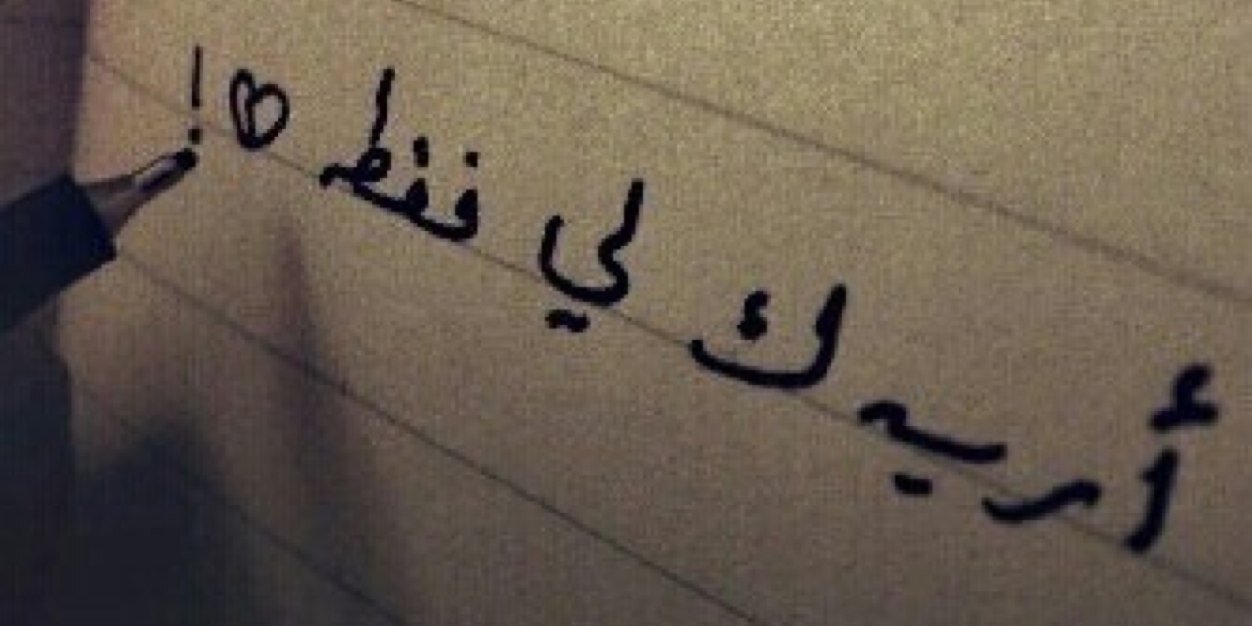 أريدك لي فقط ♡!